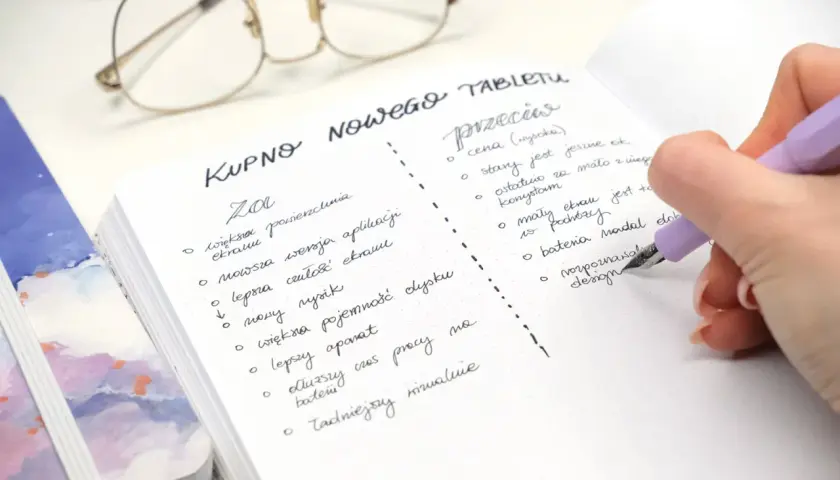 KUPNO NOWEGO TABLETU
Za
większa powierzchnia
ekranu
nowsza wersja aplikacji
lepsza czułość ekranu
nowy rysik
większa pojemność dysku
lepszy aparat
dłuższy czas pracy na
baterii
ładniejszy wizualnie
przeciw
cena (wysoka)
stary jest jeszcze ok
ostatnio za mało z niego
korzystam
mały ekran jest
w podróży
bateria nadal
design